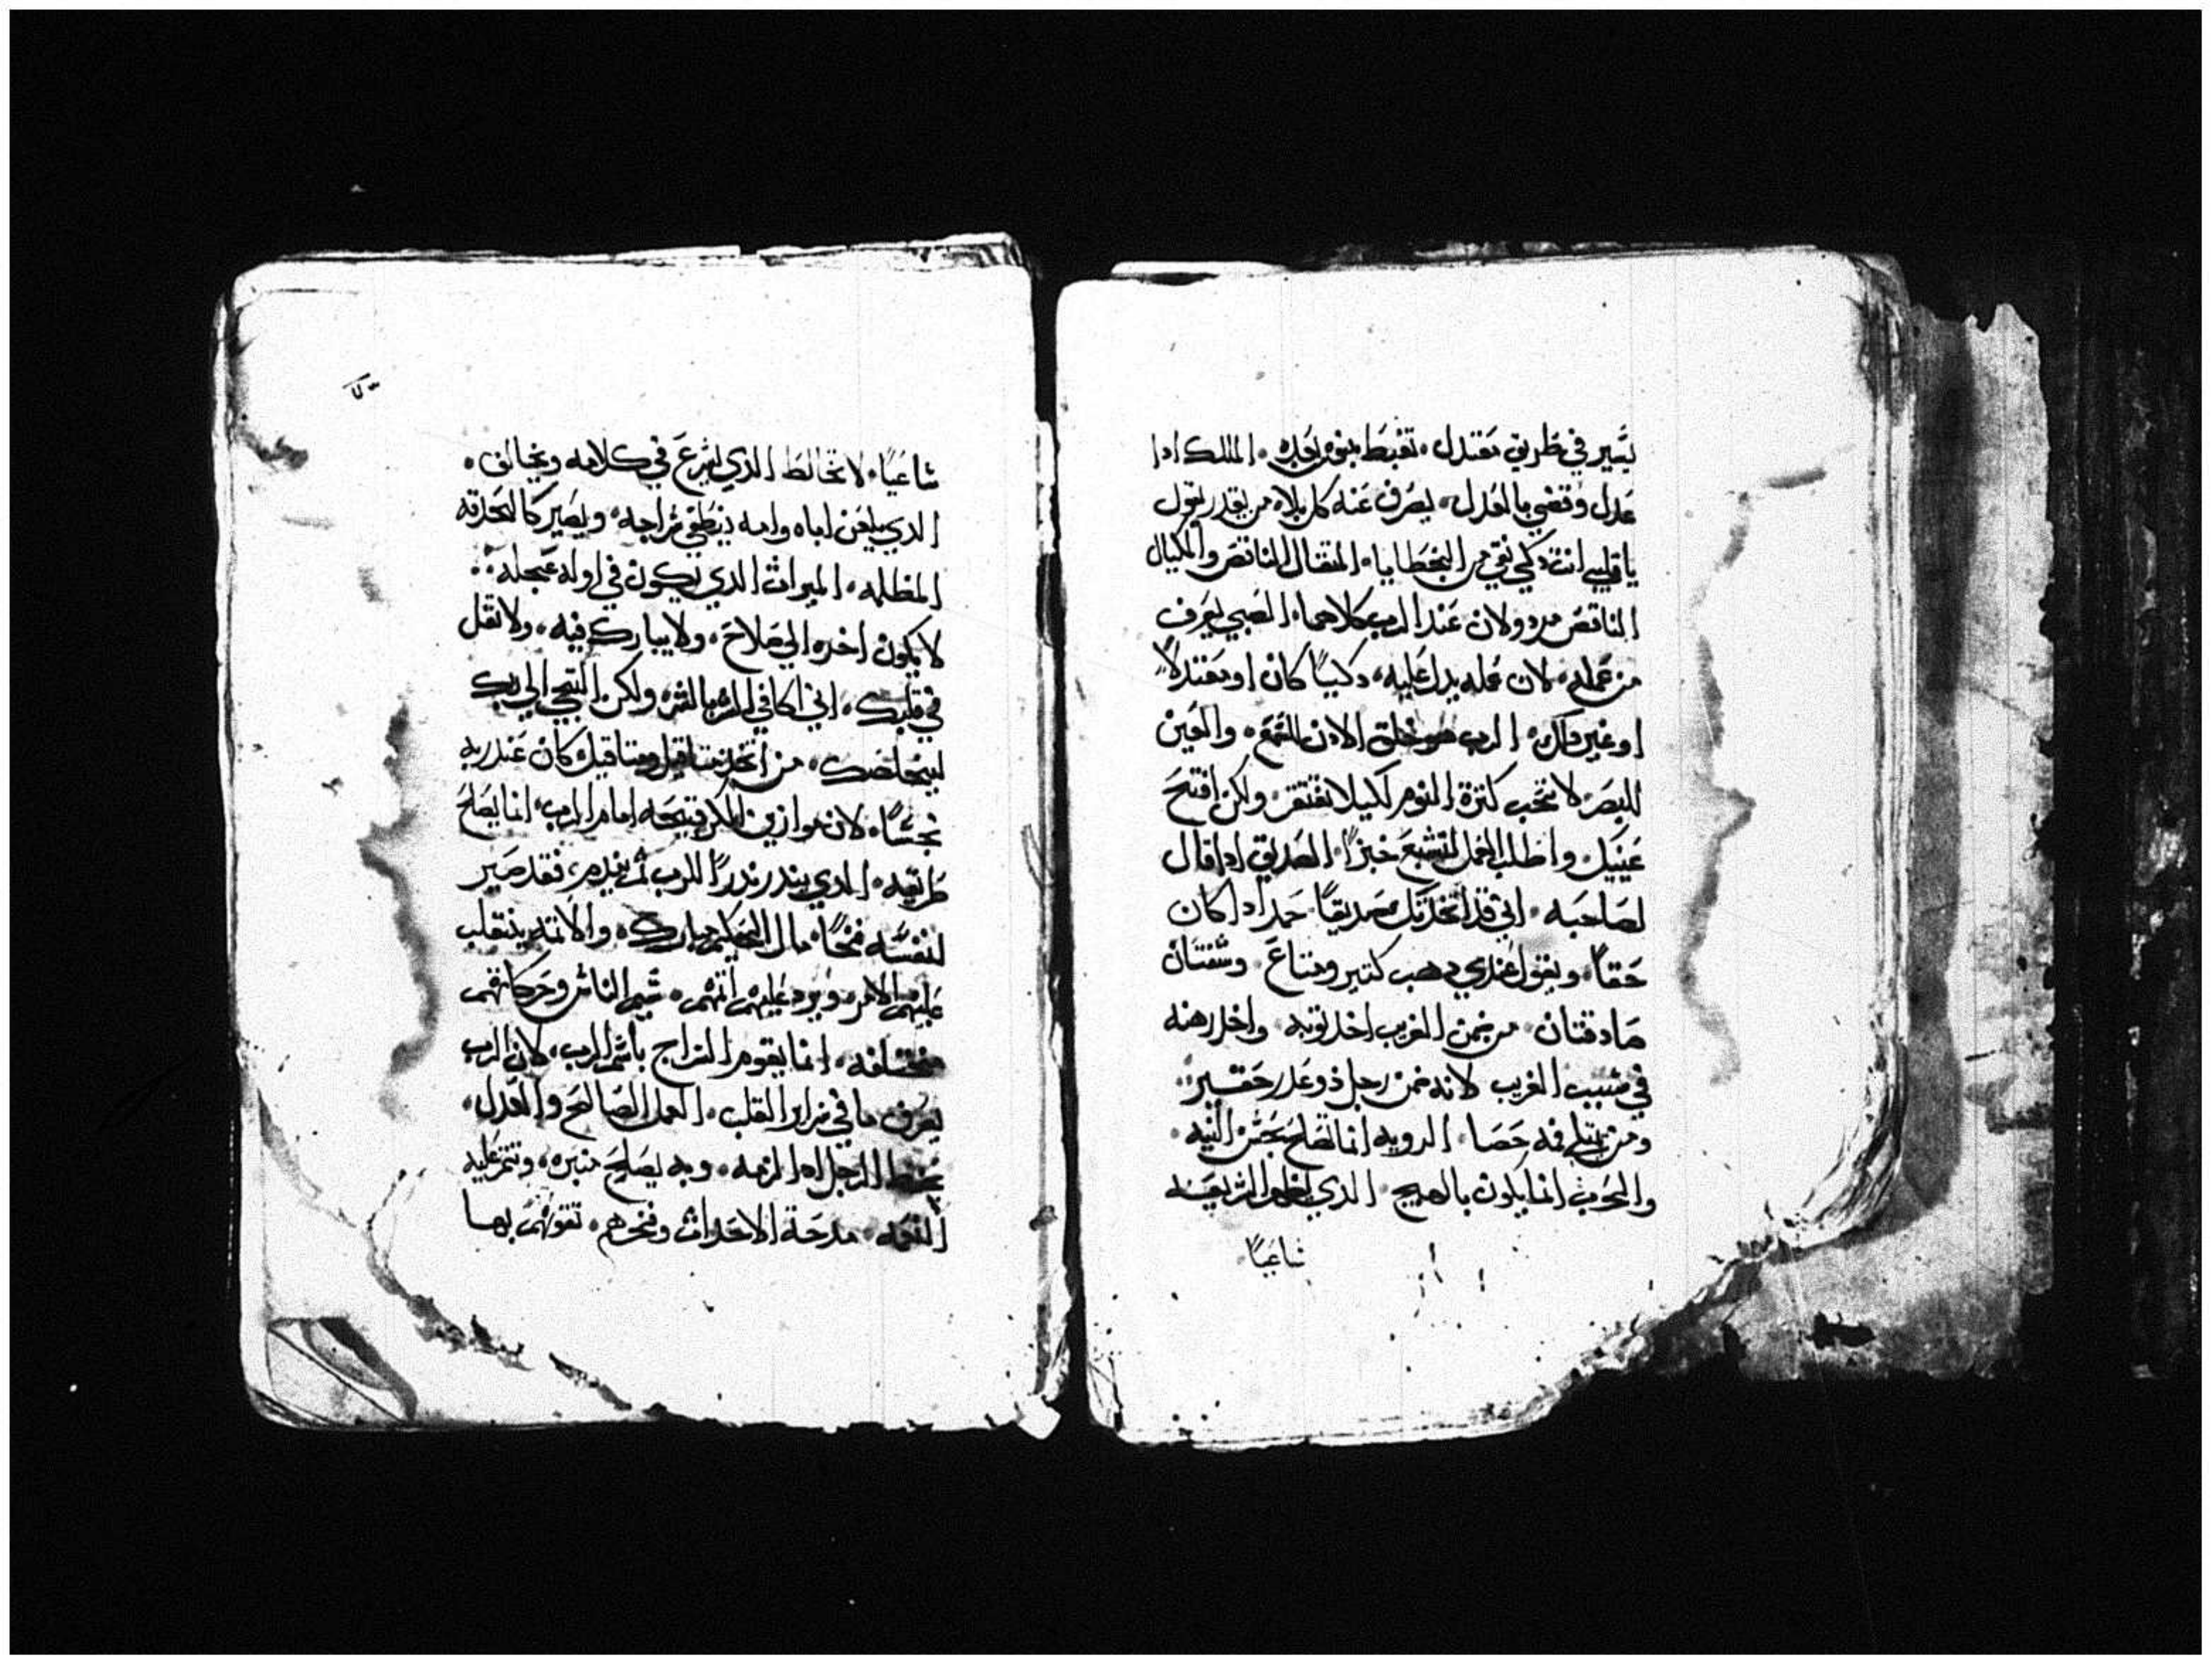 يسير في طريق معتدل، تغبط بنوه بعده، الملك ادا
عدل وقضي بالعدل، يصرف عنه كل بلاء من يقدر يقول
ياقلبي انت زكي نقي من الخطايا، المتقال الناقص والمكيال
الناقص مردولان عند الرب كلاهما، الصبي يعرف
من عمله، لان عمله يدل عليه، زكيًا كان او معتدلًا
او غير دلك، الرب هو خلق الادن للسمع، والعين
للبصر، لا تحب كترة النوم لكيلا تفتقر، ولكن افتح
عينيك، واطلب العمل لتشبع خبزًا، الصديق ادا قال
لصاحبه، اني قد اتخدتك صديقًا، حمد ادا كان
حقًا، ويقول عندي دهب كتير ومتاع، وشفتان
صادقتان، من ضمن الغريب اخد توبه، واخد رهنه
في سبب الغريب لانه ضمن رجل ذو غدر حقير،
ومن يمتلي فمه حصا، الرويه انما تصلح بحسن النيه،
والحرب انما يكون بالهيج، الذي يظهر الشريعه
شاعيًا
شاعيًا، لا تخالط الذي يسرع في كلامه ويخالف،
الدي يلعن اباه وامه ينطفي سراجه، ويصير كالحدقه
المظلمه، الميرات الدي يكون في اوله عجله،
لا يكون اخره الي صلاح، ولا يبارك فيه، ولا تقل
في قلبك، اني اكافي الشر بالشر، ولكن التجي الي ربك
ليخلصك، من اتخد متاقيل ومتاقيل كان عند ربه
نجسًا، لان موازين المكر قبيحه امام الرب، انما يصلح
طريقه، الدي يندر ندرًا للرب ثم يندم، فقد صير
لنفسه فخًا، مال الحكيم مبارك، والاتمه ينقلب
عليهم الامر، ويرد عليهم اتمهم، شيم الناس وحركاتهم
مختلفه، انما يقوم السراج باسم الرب، لان الرب
يعرف ما في سراير القلب، العمل الصالح والعدل،
يحفظ الرجل ادا لزمه، وبه يصلح منبره، وتتم عليه
النعمه، مدحة الاحدات وفخرهم، تقوتهم بها